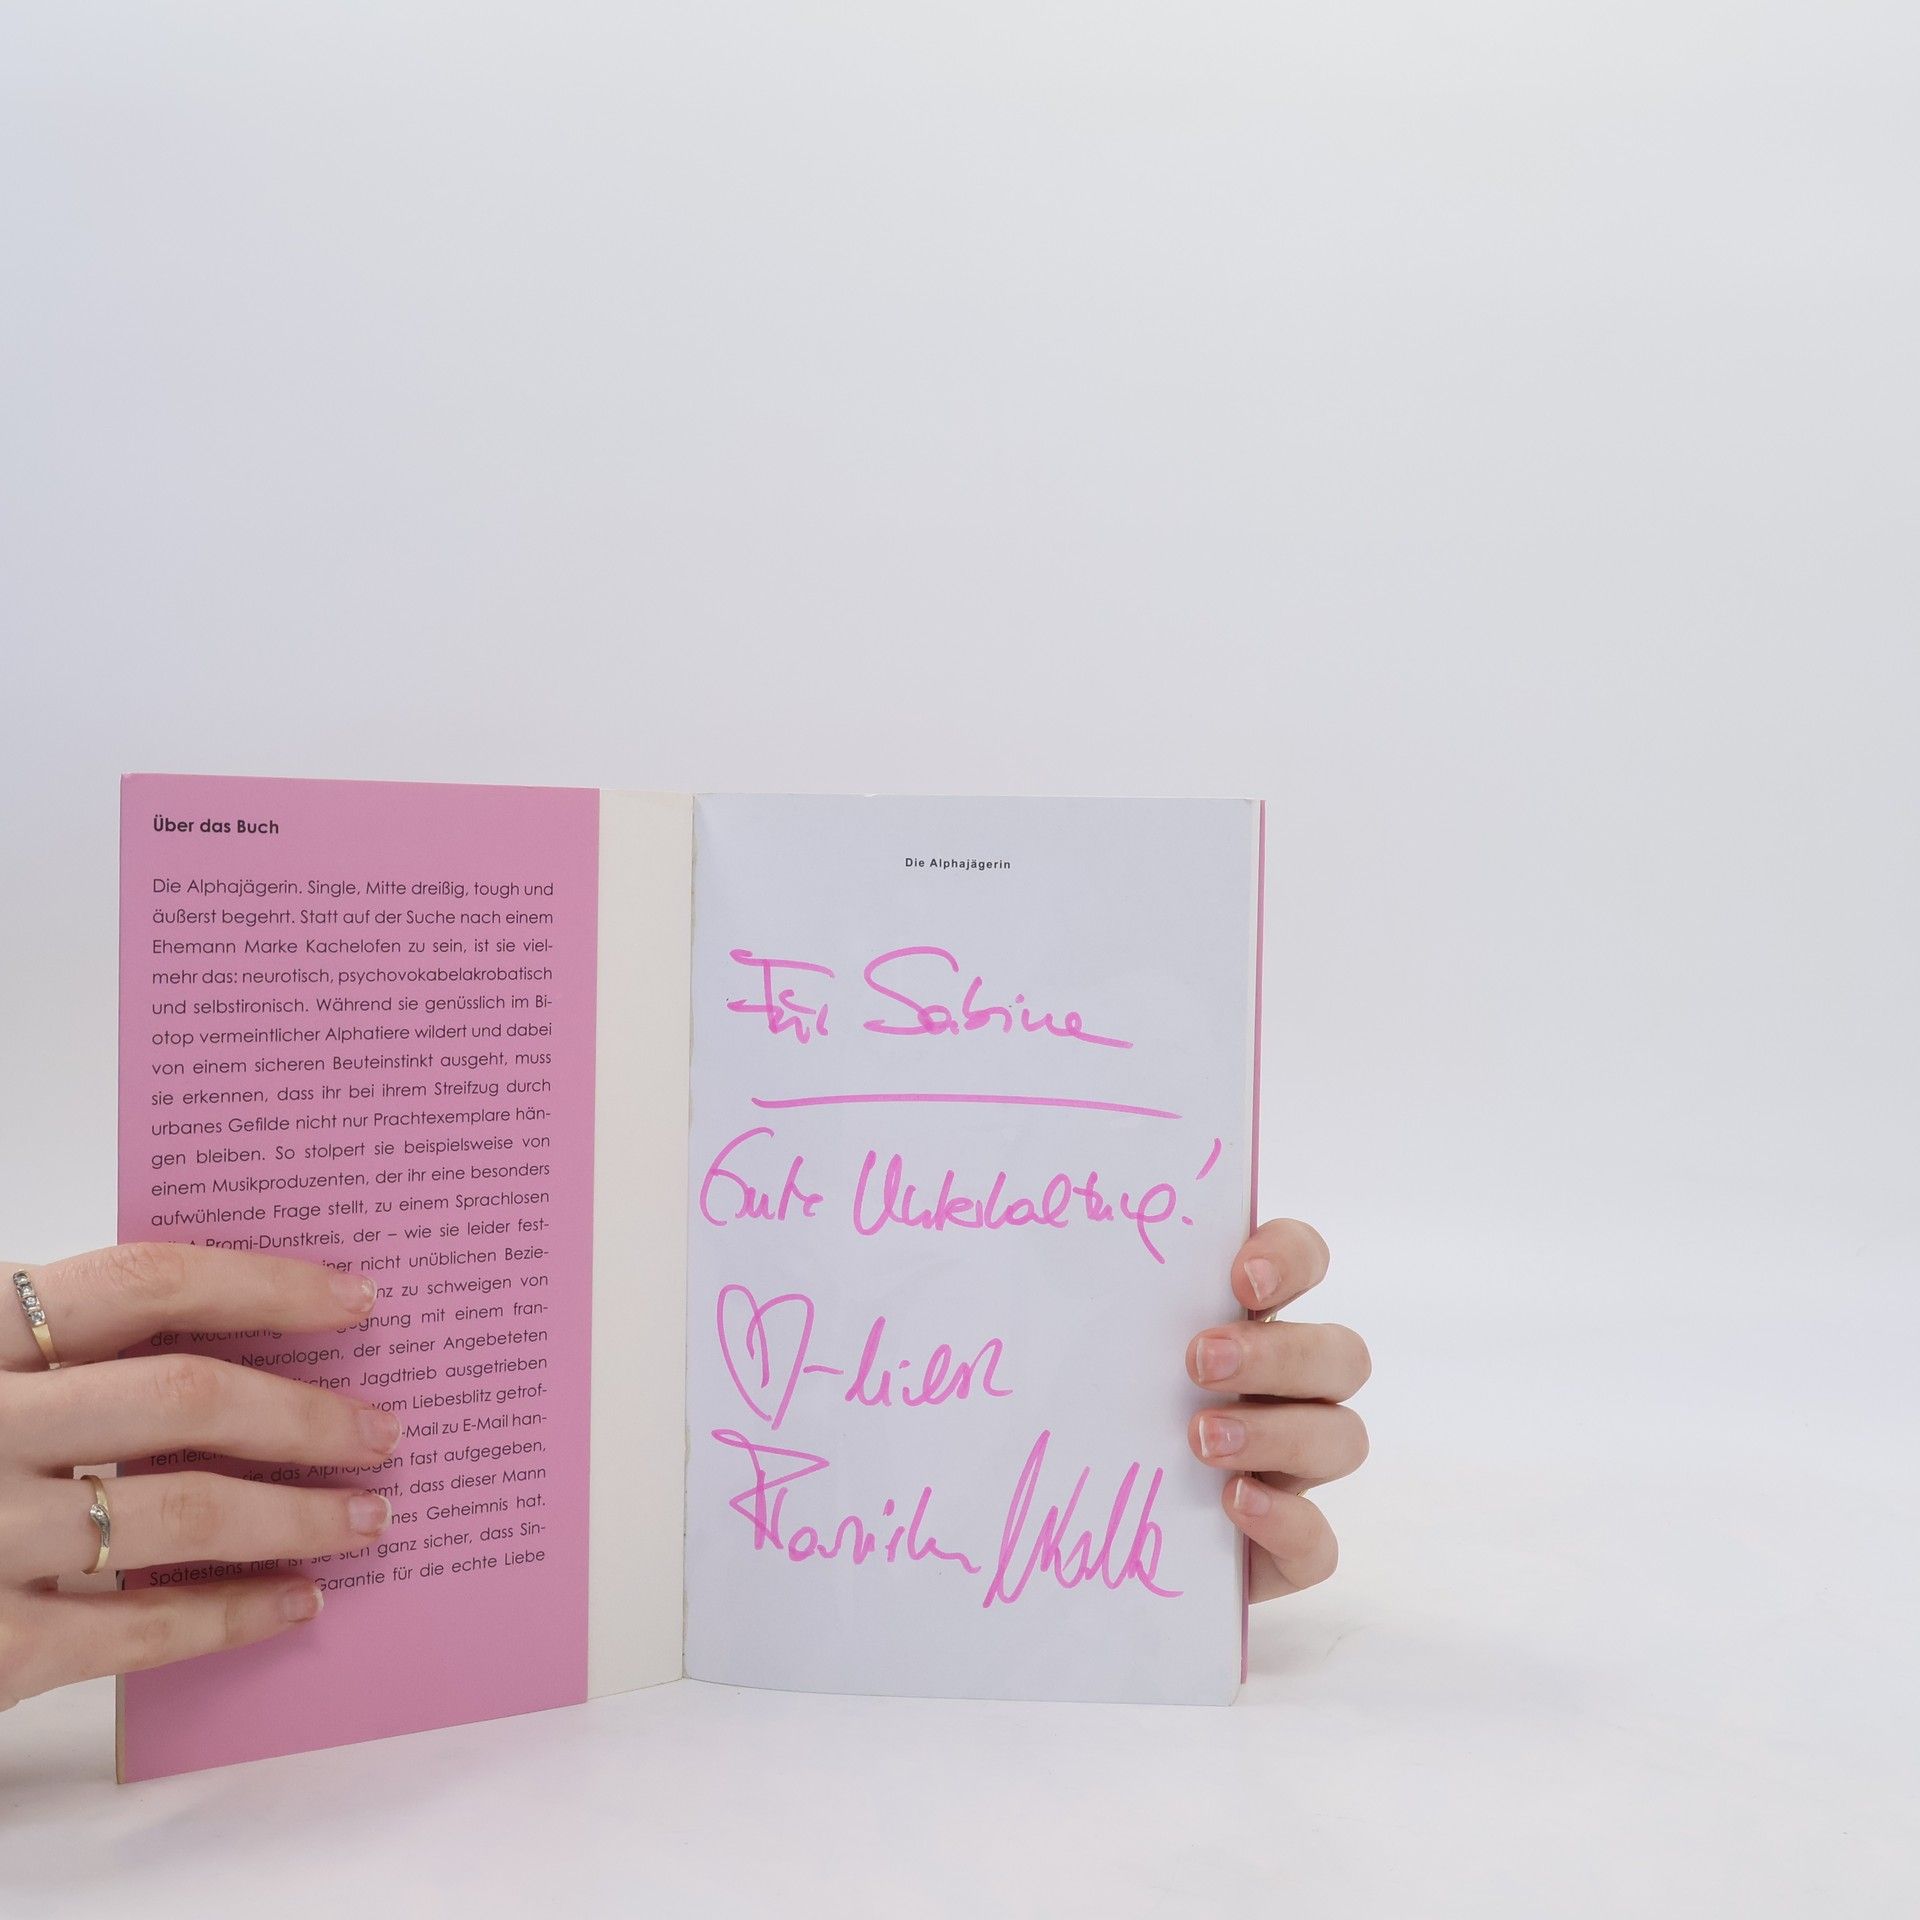 Über das Buch
Die Alphajägerin. Single, Mitte dreißig, tough und
äußerst begehrt. Statt auf der Suche nach einem
Ehemann Marke Kachelofen zu sein, ist sie viel-
mehr das: neurotisch, psychovokabelakrobatisch
und selbstironisch. Während sie genüsslich im Bi-
otop vermeintlicher Alphatiere wildert und dabei
von einem sicheren Beuteinstinkt ausgeht, muss
sie erkennen, dass ihr bei ihrem Streifzug durch
urbanes Gefilde nicht nur Prachtexemplare hän-
gen bleiben. So stolpert sie beispielsweise von
einem Musikproduzenten, der ihr eine besonders
aufwühlende Frage stellt, zu einem Sprachlosen
Promi-Dunstkreis, der – wie sie leider fest-
nicht unüblichen Bezie-
zu schweigen von
der mit einem fran-
Neurologen, der seiner Angebeteten
Jagdtrieb ausgetrieben
vom Liebesblitz getrof-
-Mail zu E-Mail han-
sie das Alphajagen fast aufgegeben,
dass dieser Mann
Geheimnis hat.
Spätestens hier ist sie sich ganz sicher, dass Sin-
Garantie für die echte Liebe
Die Alphajägerin
Für Sabine
Gute Unterhaltung!